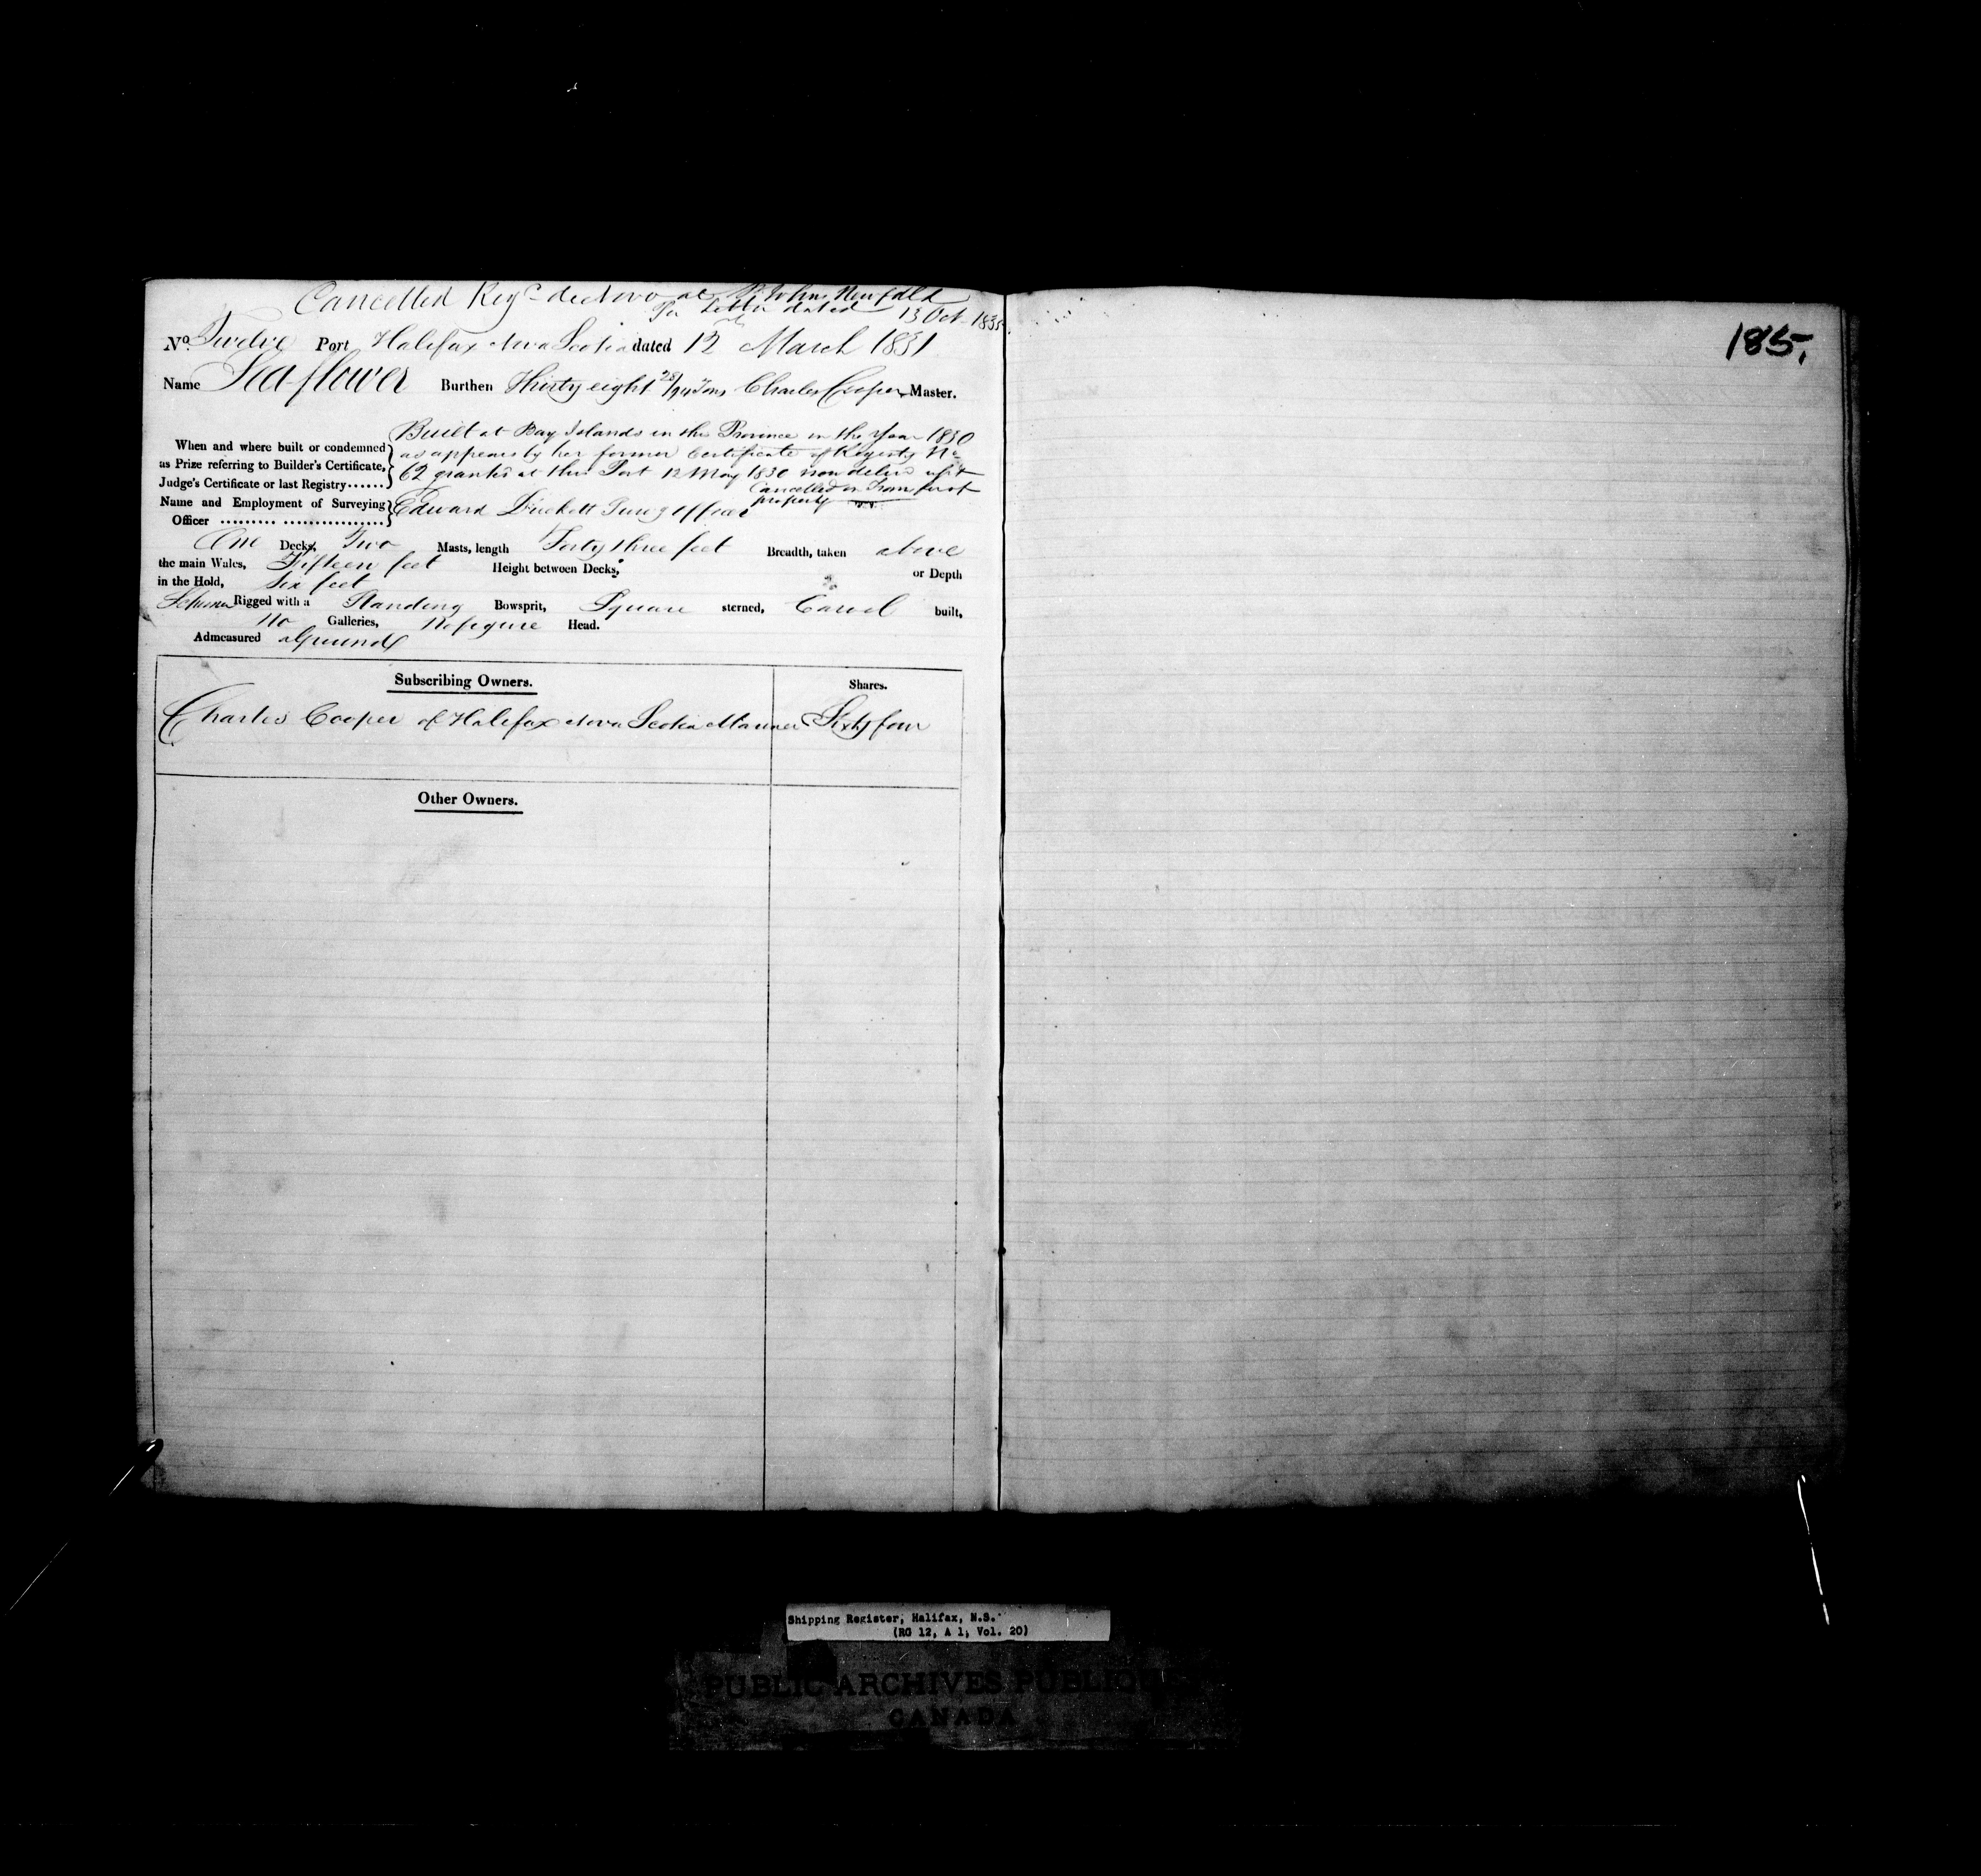 Cancelled Reg^d de Novo at St Johns Newfdld
Per Letter dated 13 Oct 1835
185.
No. Twelve Port Halifax Nova Scotia dated 12 March 1831
Name Seaflower Burthen Thirty eight 28/94 Tons Charles Cooper Master.
Built at Bay Islands in the Province in the Year 1830
When and where built or condemned
as appears by her former Certificate of Registry No
as Prize referring to Builder's Certificate,
62 granted at this Port 12 May 1830 now deliv^d up &
Judge's Certificate or last Registry......
Cancelled on Transfer of
property
Name and Employment of Surveying
Edward Duckett Surv^g Officer
Officer .......... .................
One Decks, Two Masts, length Forty three feet Breadth, taken above
the main Wales, Fifteen feet Height between Decks, or Depth
in the Hold, Six feet
Schooner Rigged with a Standing Bowsprit, Square sterned, Carvel built,
No Galleries, No figure Head.
Admeasured aground
Subscribing Owners. Shares.
Charles Cooper of Halifax Nova Scotia Mariner Sixty four
Other Owners.
Shipping Register, Halifax, N.S.
(RG 12, A 1, Vol. 20)
PUBLIC ARCHIVES PUBLIQUES
CANADA